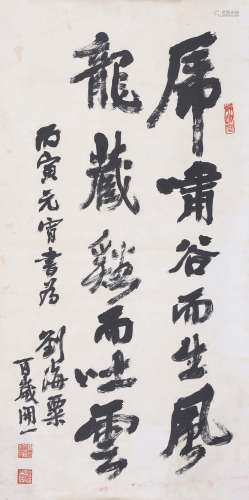 虎啸谷而生风
龍藏谿而吐雲
丙寅元宵書為
劉海粟
百歲開一